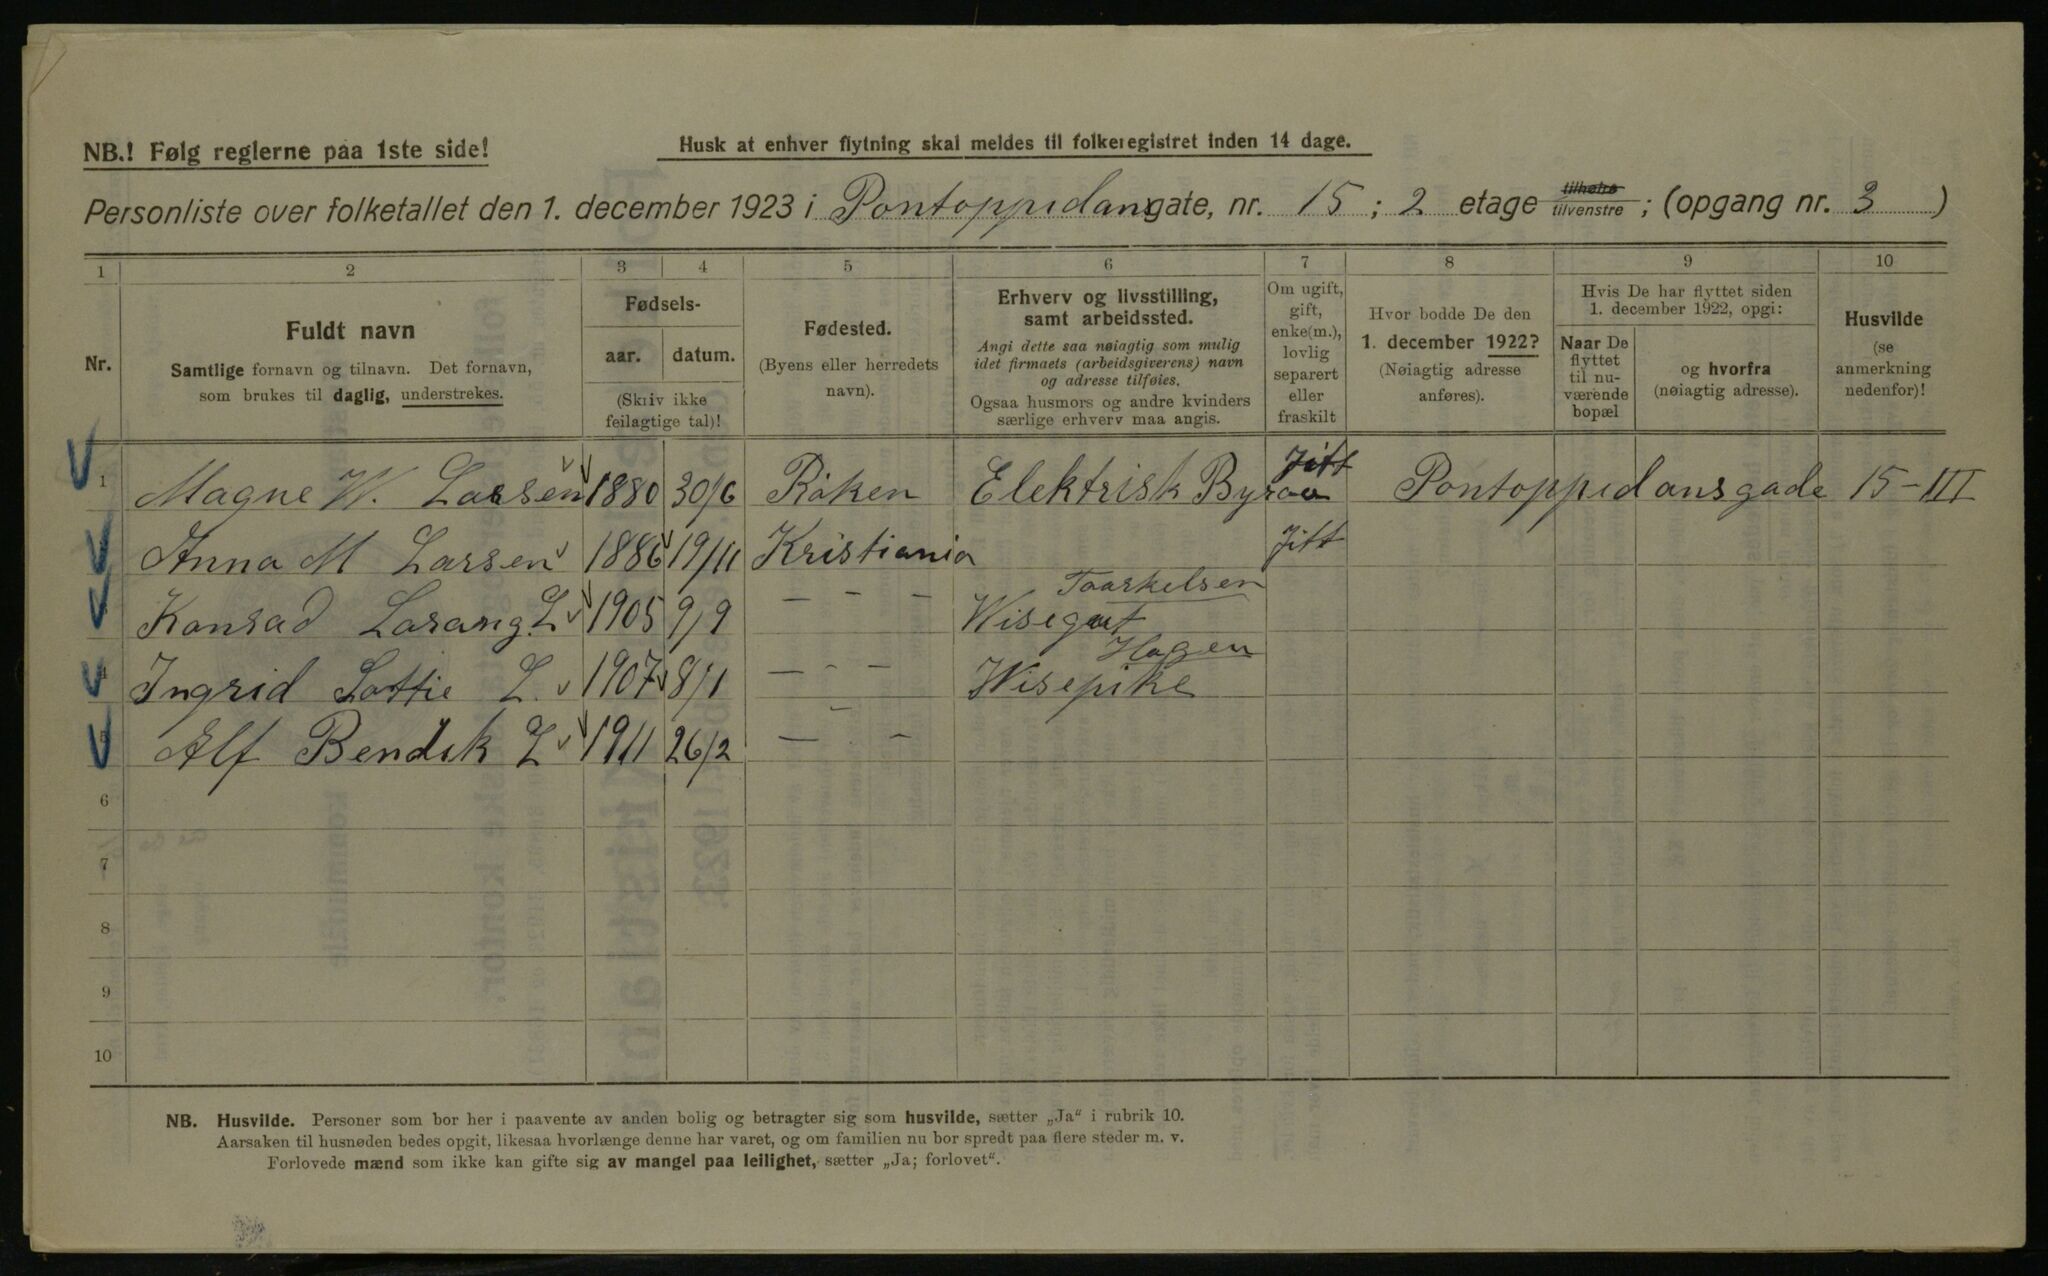 NB.! Følg reglerne paa 1ste side!
Husk at enhver flytning skal meldes til folkeregistret inden 14 dage.
Personliste over folketallet den 1. december 1923 i Pontoppidansgate, nr. 15 ; 2 etage tilhøire tilvenstre ; (opgang nr. 3 )
1 2 3 4 5 6 7 8 9 10
Nr.
Fuldt navn
Samtlige fornavn og tilnavn. Det fornavn,
som brukes til daglig, understrekes.
Fødsels-
aar. datum.
(Skriv ikke
feilagtige tal)!
Fødested.
(Byens eller herredets
navn).
Erhverv og livsstilling,
samt arbeidssted.
Angi dette saa nøiagtig som mulig
idet firmaets (arbeidsgiverens) navn
og adresse tilføies.
Ogsaa husmors og andre kvinders
særlige erhverv maa angis.
Om ugift,
gift,
enke(m.),
lovlig
separert
eller
fraskilt
Hvor bodde De den
1. december 1922?
(Nøiagtig adresse
anføres).
Hvis De har flyttet siden
1. december 1922, opgi:
Naar De
flyttet
til nu-
værende
bopæl
og hvorfra
(nøiagtig adresse).
Husvilde
(se
anmerkning
nedenfor)!
1 Magne W. Larsen 1880 30/6 Röken Elektrisk Byraa Jift Pontoppidansgade 15-III
Anna M Larsen 1886 19/11 Kristiania Jift
Konrad Lorang L 1905 9/9 — - - Taarkelsen
Wisegut
4 Ingrid Lottie L. 1907 8/1 — - - Hagen
Wisepike
5 Alf Bendik L 1911 26/2 — - -
6
7
8
9
10
NB. Husvilde. Personer som bor her i paavente av anden bolig og betragter sig som husvilde, sætter „Ja" i rubrik 10.
Aarsaken til husnøden bedes opgit, likesaa hvorlænge denne har varet, og om familien nu bor spredt paa flere steder m. v.
Forlovede mænd som ikke kan gifte sig av mangel paa leilighet, sætter „Ja; forlovet".